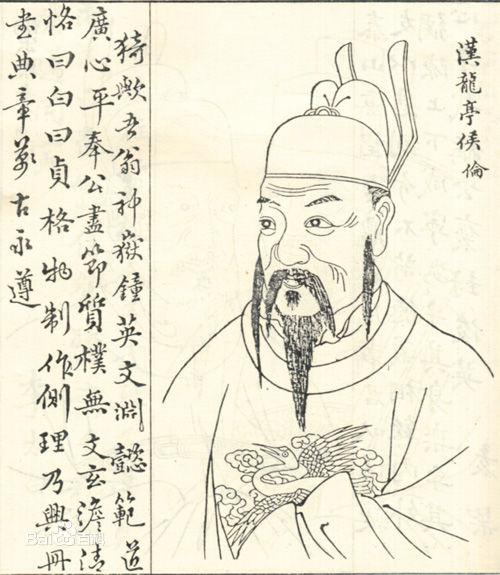 漢龍亭侯倫
猗歟吾翁神嶽鐘英文淵懿範道
廣心平奉公盡節質樸無文玄澹清
恪曰白曰貞格物制作側理乃興冊
書典章萬古永遵
Bai百科